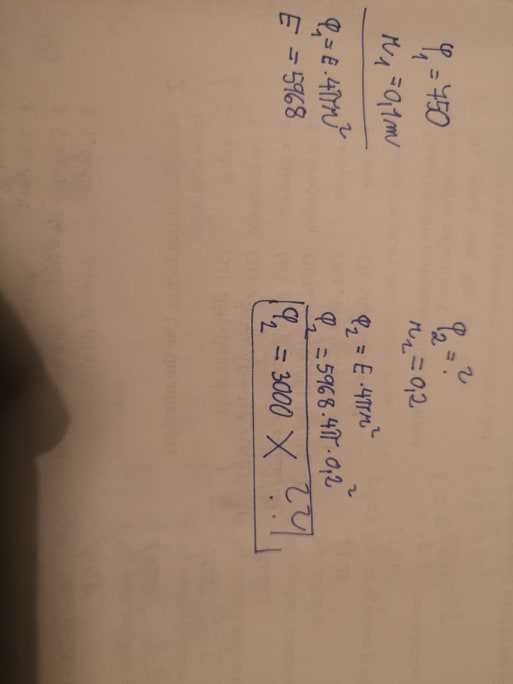 φ₁ = 750
r₁ = 0,1m
φ₁ = E · 4πr²
E = 5968
φ₂ = ?
r₂ = 0,2
φ₂ = E · 4πr²
φ₂ = 5968 · 4π · 0,2²
φ₂ = 3000 X ??